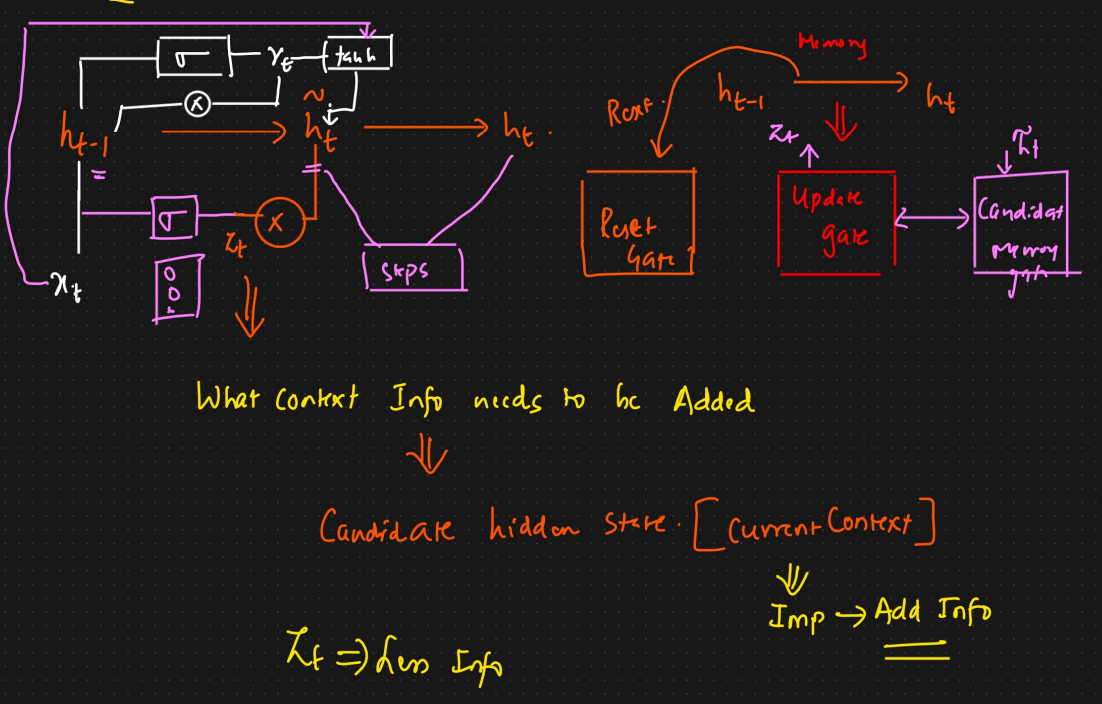 σ r_t tanh
x
h_{t-1} → h̃_t → h_t
=
σ z_t x
x_t
0
0
steps
Memory
h_{t-1} → h_t
Reset
z_t
h̃_t
Reset
Gate
Update
gate
Candidate
Memory
What Context Info needs to be Added
Candidate hidden state. [Current Context]
Imp → Add Info
Z_t ⇒ Less Info